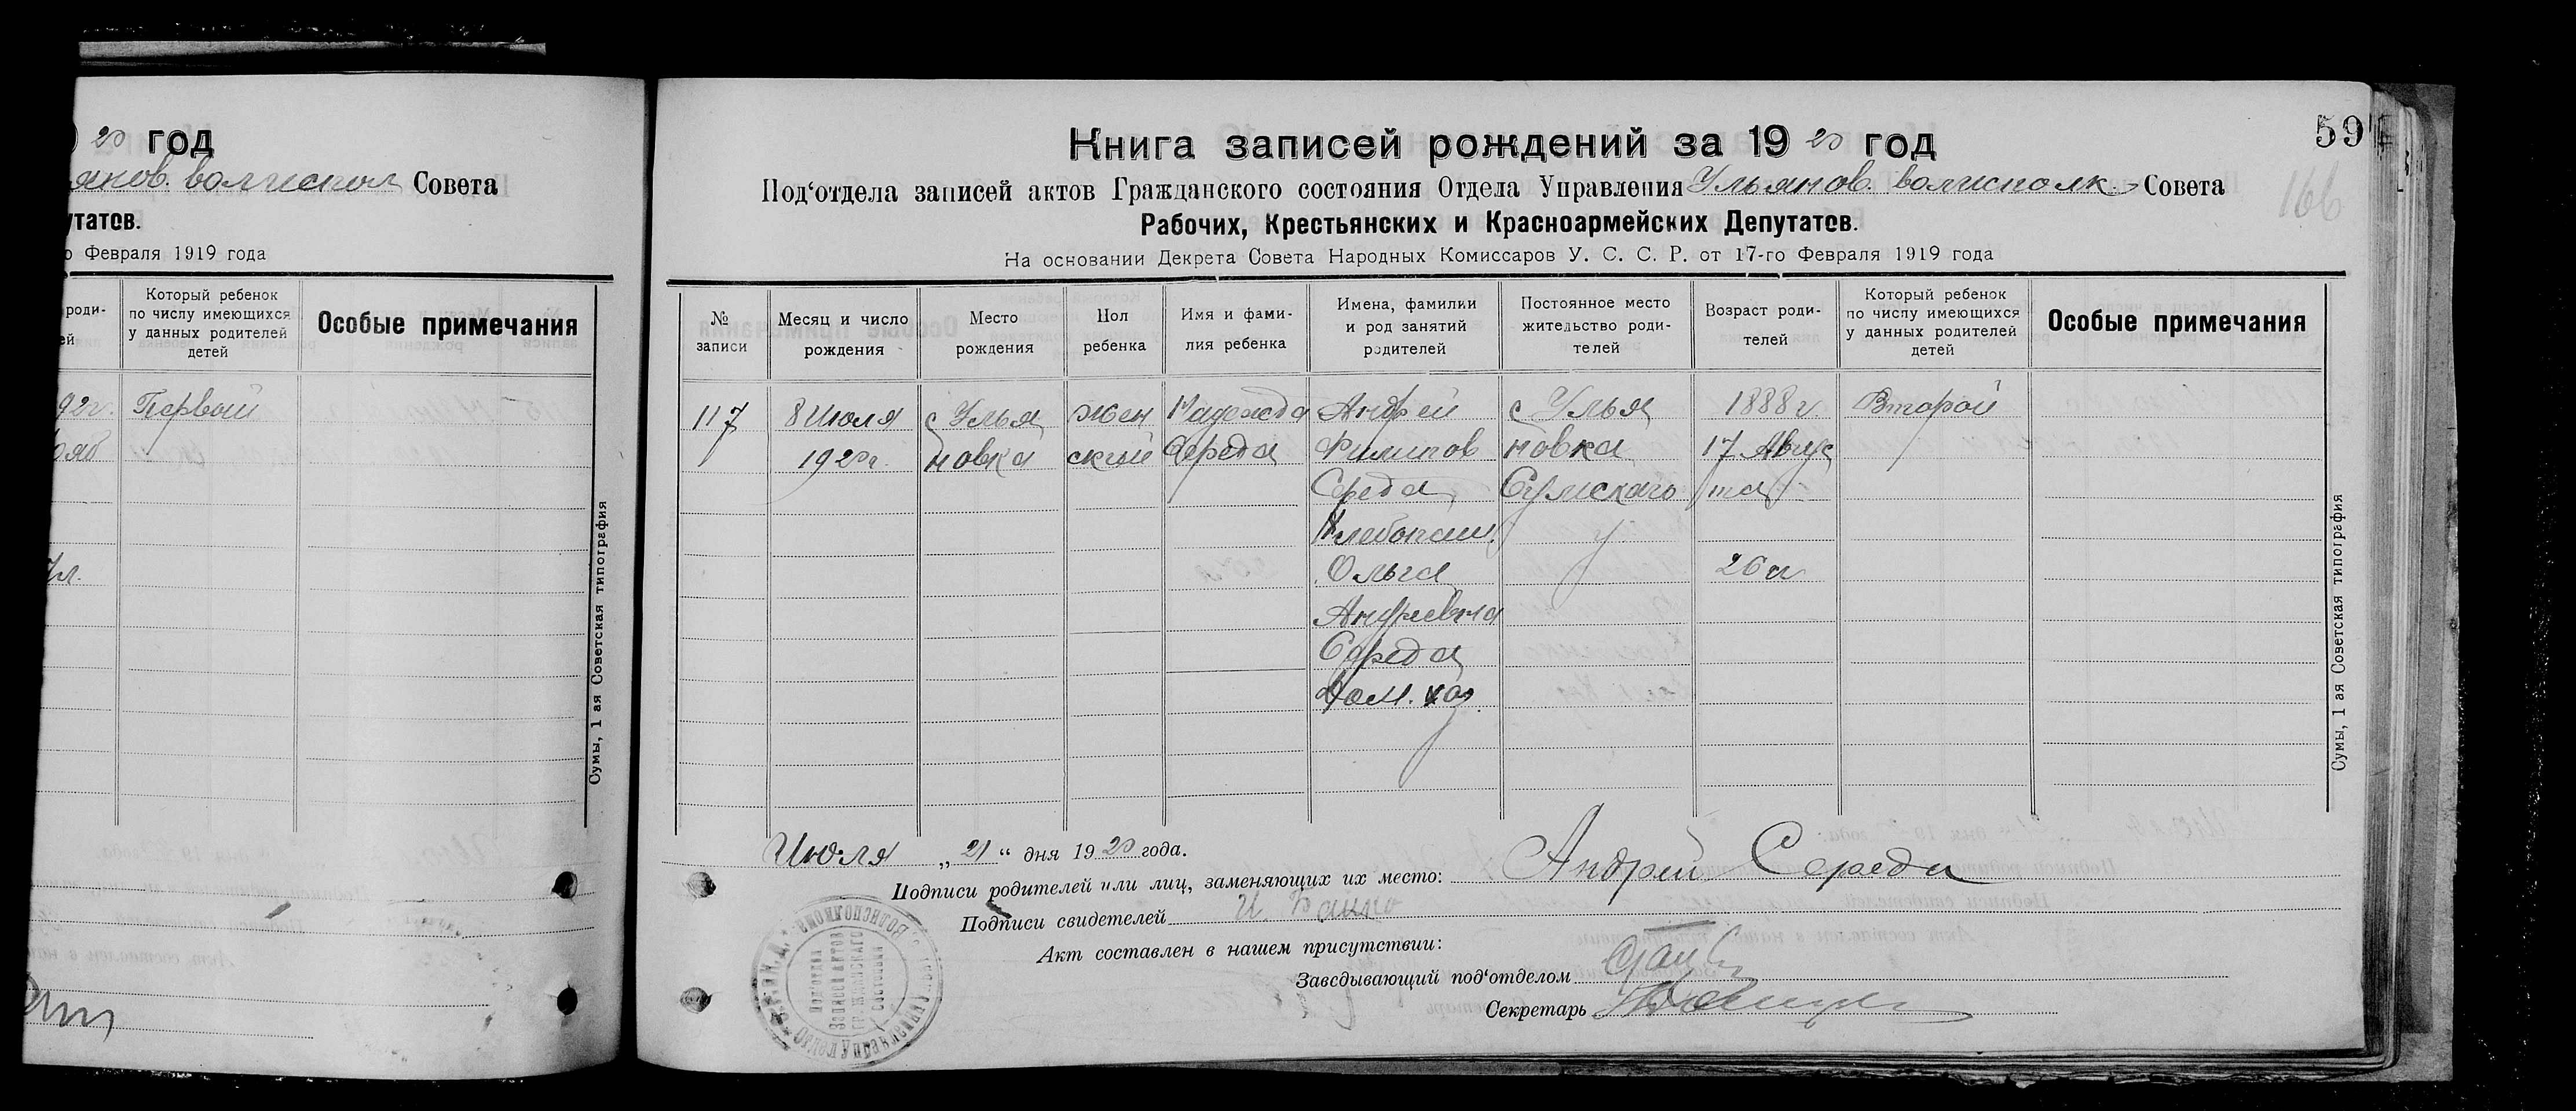 20 год
янов. волисполк Совета
утатов.
о Февраля 1919 года
роди-
ей
Который ребенок
по числу имеющихся
у данных родителей
детей
Особые примечания
92г.
Первый
Сумы, 1 ая Советская типография
59
166
Книга записей рождений за 1920 год
Под‘отдела записей актов Гражданского состояния Отдела Управления Ульянов. волисполк. Совета
Рабочих, Крестьянских и Красноармейских Депутатов.
На основании Декрета Совета Народных Комиссаров У. С. С. Р. от 17-го Февраля 1919 года
№
записи
Месяц и число
рождения
Место
рождения
Пол
ребенка
Имя и фами-
лия ребенка
Имена, фамилии
и род занятий
родителей
Постоянное место
жительство роди-
телей
Возраст роди-
телей
Который ребенок
по числу имеющихся
у данных родителей
детей
Особые примечания
117
8 Июля
1920г.
с Улья
новка
жен
ский
Надежда
Середа
Андрей
Филипов
Середа
Хлебопаш.
Ольга
Андреевна
Середа
дом. хоз.
с Улья
новка
Сумскаго
у
1888г
17 Авгус
та
26 л
Второй
Сумы, 1 ая Советская типография
Июля „21“ дня 1920 года.
Подписи родителей или лиц, заменяющих их место: Андрей Середа
Подписи свидетелей
Акт составлен в нашем присутствии:
Заведывающий под‘отделом
Секретарь
Подотдел
Записи актов
Гражданского
Состояния